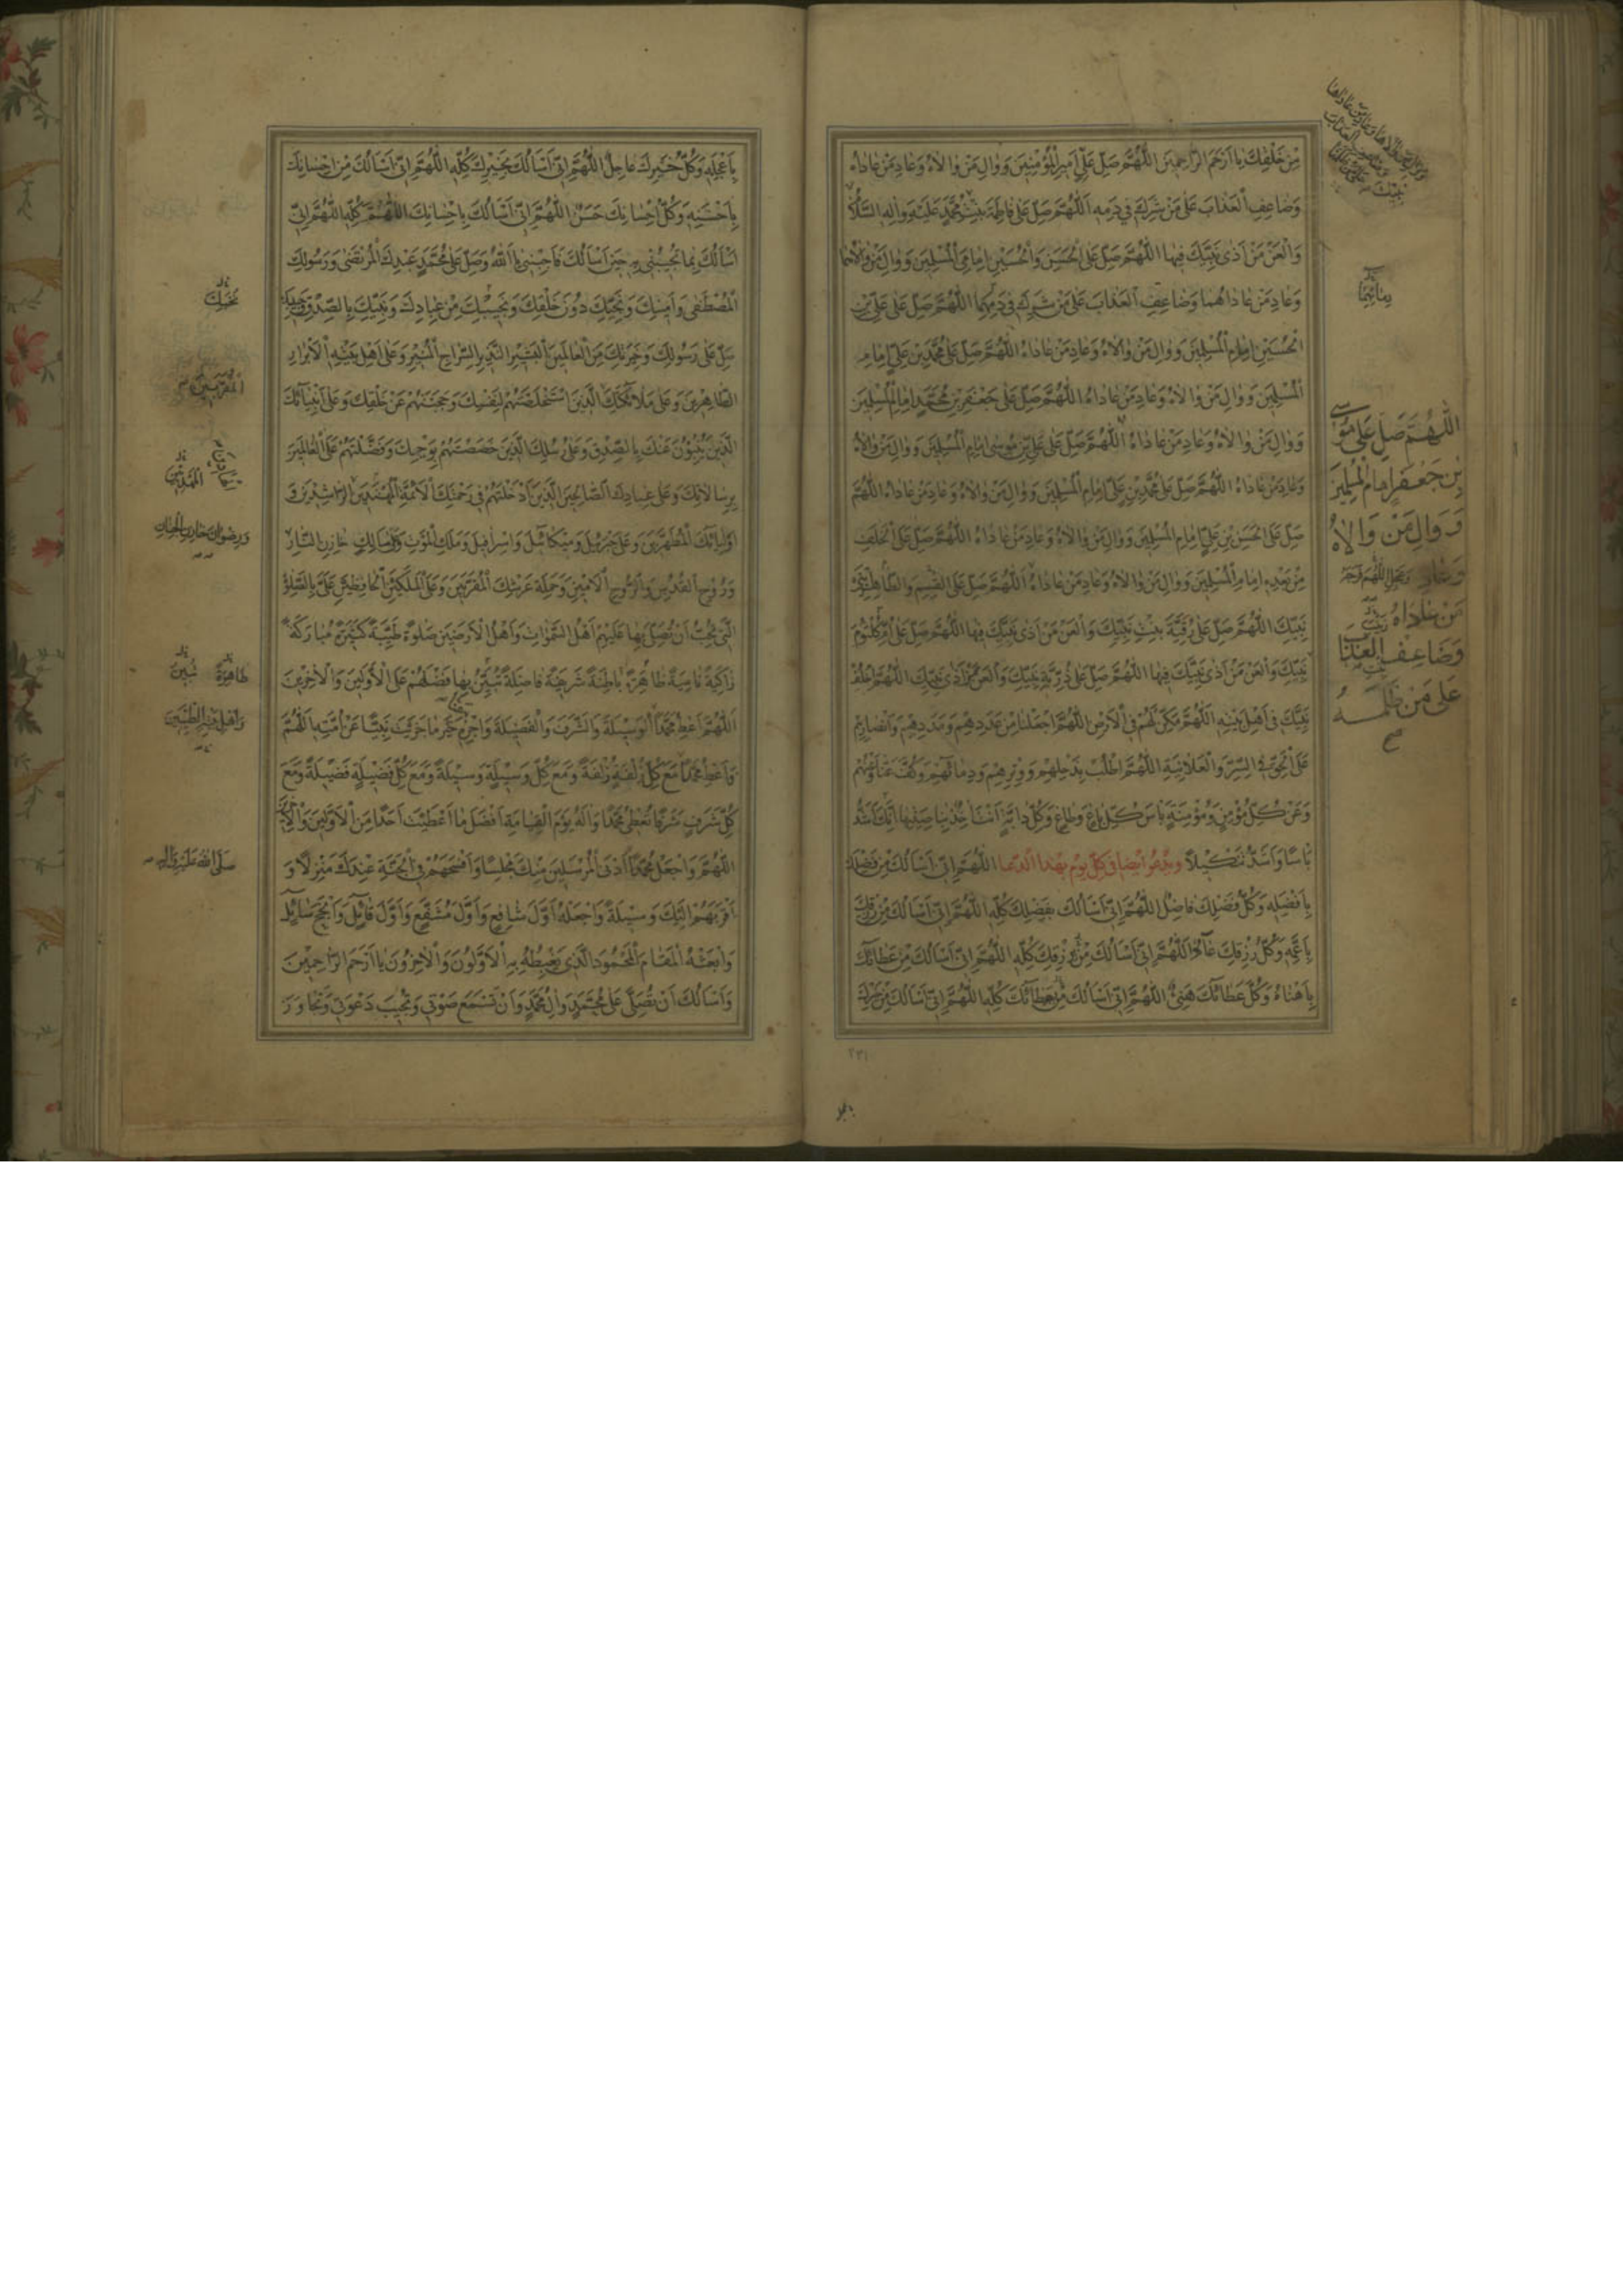 مِنْ خَلْقِكَ يا اَرْحَمَ الرّاحِمينَ اللّهُمَّ صَلِّ عَلى اَميرِ الْمُؤْمِنينَ وَوالِ مَنْ والاهُ وَعادِ مَنْ عاداهُ
وَضاعِفِ الْعَذابَ عَلى مَنْ شَرِكَ في دَمِهِ اَللّهُمَّ صَلِّ عَلى فاطِمَةَ بِنْتِ مُحَمَّدٍ عَلَيْهِ وَآلِهِ السَّلامُ
وَالْعَنْ مَنْ آذى نَبِيَّكَ فيها اللّهُمَّ صَلِّ عَلَى الْحَسَنِ وَالْحُسَيْنِ اِمامَيِ الْمُسْلِمينَ وَوالِ مَنْ والاهُما
وَعادِ مَنْ عاداهُما وَضاعِفِ الْعَذابَ عَلى مَنْ شَرِكَ في دَمِهِما اللّهُمَّ صَلِّ عَلى عَلِيِّ بْنِ
الْحُسَيْنِ اِمامِ الْمُسْلِمينَ وَوالِ مَنْ والاهُ وَعادِ مَنْ عاداهُ اللّهُمَّ صَلِّ عَلى مُحَمَّدِ بْنِ عَلِيٍّ اِمامِ
الْمُسْلِمينَ وَوالِ مَنْ والاهُ وَعادِ مَنْ عاداهُ اللّهُمَّ صَلِّ عَلى جَعْفَرِ بْنِ مُحَمَّدٍ اِمامِ الْمُسْلِمينَ
وَوالِ مَنْ والاهُ وَعادِ مَنْ عاداهُ اللّهُمَّ صَلِّ عَلى عَلِيِّ بْنِ مُوسى اِمامِ الْمُسْلِمينَ وَوالِ مَنْ والاهُ
وَعادِ مَنْ عاداهُ اللّهُمَّ صَلِّ عَلى مُحَمَّدِ بْنِ عَلِيٍّ اِمامِ الْمُسْلِمينَ وَوالِ مَنْ والاهُ وَعادِ مَنْ عاداهُ اللّهُمَّ
صَلِّ عَلَى الْحَسَنِ بْنِ عَلِيٍّ اِمامِ الْمُسْلِمينَ وَوالِ مَنْ والاهُ وَعادِ مَنْ عاداهُ اللّهُمَّ صَلِّ عَلَى الْخَلَفِ
مِنْ بَعْدِهِ اِمامِ الْمُسْلِمينَ وَوالِ مَنْ والاهُ وَعادِ مَنْ عاداهُ اللّهُمَّ صَلِّ عَلَى الْقاسِمِ وَالطّاهِرِ ابْنَيْ
نَبِيِّكَ اللّهُمَّ صَلِّ عَلى رُقَيَّةَ بِنْتِ نَبِيِّكَ وَالْعَنْ مَنْ آذى نَبِيَّكَ فيها اللّهُمَّ صَلِّ عَلى اُمِّ كُلْثُومَ
نَبِيِّكَ وَالْعَنْ مَنْ آذى نَبِيَّكَ فيها اللّهُمَّ صَلِّ عَلى ذُرِّيَّةِ نَبِيِّكَ وَالْعَنْ مَنْ آذى نَبِيَّكَ اللّهُمَّ اخْلُفْ
نَبِيَّكَ في اَهْلِ بَيْتِهِ اَللّهُمَّ مَكِّنْ لَهُمْ فِي الْاَرْضِ اللّهُمَّ اجْعَلْنا مِنْ عَدَدِهِمْ وَمَدَدِهِمْ وَاَنْصارِهِمْ
عَلَى الْحَقِّ فِي السِّرِّ وَالْعَلانِيَةِ اللّهُمَّ اطْلُبْ بِذَحْلِهِمْ وَوِتْرِهِمْ وَدِمائِهِمْ وَكُفَّ عَنّا وَعَنْهُمْ
وَعَنْ كُلِّ مُؤْمِنٍ وَمُؤْمِنَةٍ بَأْسَ كُلِّ باغٍ وَطاغٍ وَكُلِّ دابَّةٍ اَنْتَ آخِذٌ بِناصِيَتِها اِنَّكَ اَشَدُّ
بَأْسًا وَاَشَدُّ تَنْكيلًا ويدعو ايضا في كل يوم بهذا الدعا اللّهُمَّ اِنّي اَسْاَلُكَ مِنْ فَضْلِكَ
بِاَفْضَلِهِ وَكُلُّ فَضْلِكَ فاضِلٌ اللّهُمَّ اِنّي اَسْاَلُكَ بِفَضْلِكَ كُلِّهِ اللّهُمَّ اِنّي اَسْاَلُكَ مِنْ رِزْقِكَ
بِاَعَمِّهِ وَكُلُّ رِزْقِكَ عامٌّ اَللّهُمَّ اِنّي اَسْاَلُكَ مِنْ رِزْقِكَ كُلِّهِ اللّهُمَّ اِنّي اَسْاَلُكَ مِنْ عَطائِكَ
بِاَهْنَاهُ وَكُلُّ عَطائِكَ هَنِيءٌ اللّهُمَّ اِنّي اَسْاَلُكَ مِنْ عَطائِكَ كُلِّهِ اللّهُمَّ اِنّي اَسْاَلُكَ مِنْ خَيْرِكَ
اَللّهُمَّ صَلِّ عَلى مُوسى
بْنِ جَعْفَرٍ اِمامِ الْمُسْلِمينَ
وَوالِ مَنْ والاهُ
وَعادِ
مَنْ عاداهُ
وَضاعِفِ الْعَذابَ
عَلى مَنْ ظَلَمَهُ
صح
٢٣١
بِاَعْجَلِهِ وَكُلُّ خَيْرِكَ عاجِلٌ اللّهُمَّ اِنّي اَسْاَلُكَ بِخَيْرِكَ كُلِّهِ اللّهُمَّ اِنّي اَسْاَلُكَ مِنْ اِحْسانِكَ
بِاَحْسَنِهِ وَكُلُّ اِحْسانِكَ حَسَنٌ اللّهُمَّ اِنّي اَسْاَلُكَ بِاِحْسانِكَ اللّهُمَّ كُلِّهِ اللّهُمَّ اِنّي
اَسْاَلُكَ بِما تُجيبُني بِهِ حينَ اَسْاَلُكَ فَاَجِبْني يا اَللهُ وَصَلِّ عَلى مُحَمَّدٍ عَبْدِكَ الْمُرْتَضى وَرَسُولِكَ
الْمُصْطَفى وَاَمينِكَ وَنَجِيِّكَ دُونَ خَلْقِكَ وَنَجيبِكَ مِنْ عِبادِكَ وَنَبِيِّكَ بِالصِّدْقِ وَحَبيبِكَ
صَلِّ عَلى رَسُولِكَ وَخِيَرَتِكَ مِنَ الْعالَمينَ الْبَشيرِ النَّذيرِ السِّراجِ الْمُنيرِ وَعَلى اَهْلِ بَيْتِهِ الْاَبْرارِ
الطّاهِرينَ وَعَلى مَلائِكَتِكَ الَّذينَ اسْتَخْلَصْتَهُمْ لِنَفْسِكَ وَحَجَبْتَهُمْ عَنْ خَلْقِكَ وَعَلى اَنْبِيائِكَ
الَّذينَ يُنْبِئُونَ عَنْكَ بِالصِّدْقِ وَعَلى رُسُلِكَ الَّذينَ خَصَصْتَهُمْ بِوَحْيِكَ وَفَضَّلْتَهُمْ عَلَى الْعالَمينَ
بِرِسالاتِكَ وَعَلى عِبادِكَ الصّالِحينَ الَّذينَ اَدْخَلْتَهُمْ في رَحْمَتِكَ الْاَئِمَّةِ الْمُهْتَدينَ الرّاشِدينَ وَ
اَوْلِيائِكَ الْمُطَهَّرينَ وَعَلى جَبْرَئيلَ وَميكائيلَ وَاِسْرافيلَ وَمَلَكِ الْمَوْتِ وَعَلى مالِكٍ خازِنِ النّارِ
وَرُوحِ الْقُدُسِ وَالرُّوحِ الْاَمينِ وَحَمَلَةِ عَرْشِكَ الْمُقَرَّبينَ وَعَلَى الْمَلَكَيْنِ الْحافِظَيْنِ عَلَيَّ بِالصَّلوةِ
الَّتي تُحِبُّ اَنْ تُصَلِّيَ بِها عَلَيْهِمْ اَهْلُ السَّمواتِ وَاَهْلُ الْاَرَضينَ صَلوةً طَيِّبَةً كَثيرَةً مُبارَكَةً
زاكِيَةً نامِيَةً ظاهِرَةً باطِنَةً شَريفَةً فاضِلَةً تُبَيِّنُ بِها فَضْلَهُمْ عَلَى الْاَوَّلينَ وَالْاخِرينَ
اَللّهُمَّ اَعْطِ مُحَمَّدًا الْوَسيلَةَ وَالشَّرَفَ وَالْفَضيلَةَ وَاجْزِهِ خَيْرَ ما جَزَيْتَ نَبِيًّا عَنْ اُمَّتِهِ اَللّهُمَّ
وَاَعْطِ مُحَمَّدًا مَعَ كُلِّ زُلْفَةٍ زُلْفَةً وَمَعَ كُلِّ وَسيلَةٍ وَسيلَةً وَمَعَ كُلِّ فَضيلَةٍ فَضيلَةً وَمَعَ
كُلِّ شَرَفٍ شَرَفًا تُعْطي مُحَمَّدًا وَآلَهُ يَوْمَ الْقِيامَةِ اَفْضَلَ ما اَعْطَيْتَ اَحَدًا مِنَ الْاَوَّلينَ وَالْاخِرينَ
اللّهُمَّ وَاجْعَلْ مُحَمَّدًا اَدْنَى الْمُرْسَلينَ مِنْكَ مَجْلِسًا وَاَفْسَحَهُمْ فِي الْجَنَّةِ عِنْدَكَ مَنْزِلًا وَ
اَقْرَبَهُمْ اِلَيْكَ وَسيلَةً وَاجْعَلْهُ اَوَّلَ شافِعٍ وَاَوَّلَ مُشَفَّعٍ وَاَوَّلَ قائِلٍ وَاَنْجَحَ سائِلٍ
وَابْعَثْهُ الْمَقامَ الْمَحْمُودَ الَّذي يَغْبِطُهُ بِهِ الْاَوَّلُونَ وَالْاخِرُونَ يا اَرْحَمَ الرّاحِمينَ
وَاَسْاَلُكَ اَنْ تُصَلِّيَ عَلى مُحَمَّدٍ وَآلِ مُحَمَّدٍ وَاَنْ تَسْمَعَ صَوْتي وَتُجيبَ دَعْوَتي وَتَجاوَزَ
وَرِضْوانَ خازِنِ الْجِنانِ
طاهِرَةً
تُبينُ
وَاَهْلِ بَيْتِهِ الطَّيِّبينَ
صَلَّى اللهُ عَلَيْهِ وَآلِهِ